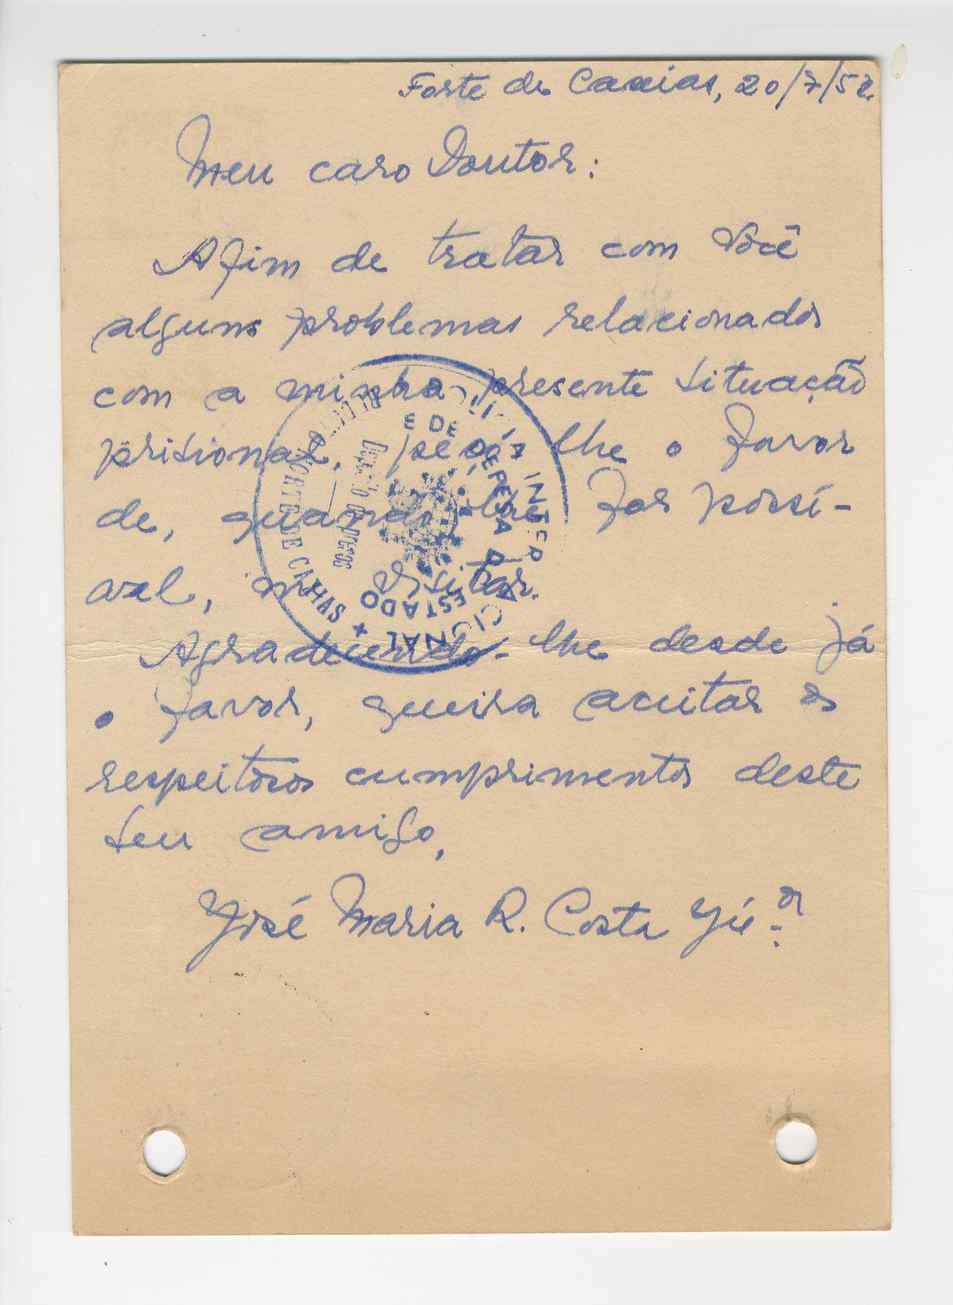 Forte de Caxias, 20/7/52
Meu caro Doutor:
Afim de tratar com Você
alguns problemas relacionados
com a minha presente situação
prisional, peço-lhe o favor
de, quando lhe for possí-
vel, me visitar.
Agradecendo-lhe desde já
o favor, queira aceitar os
respeitosos cumprimentos deste
seu amigo,
José Maria R. Costa Jú.or
INTERNACIONAL
E DE DEFESA DO ESTADO
FORTE DE CAXIAS